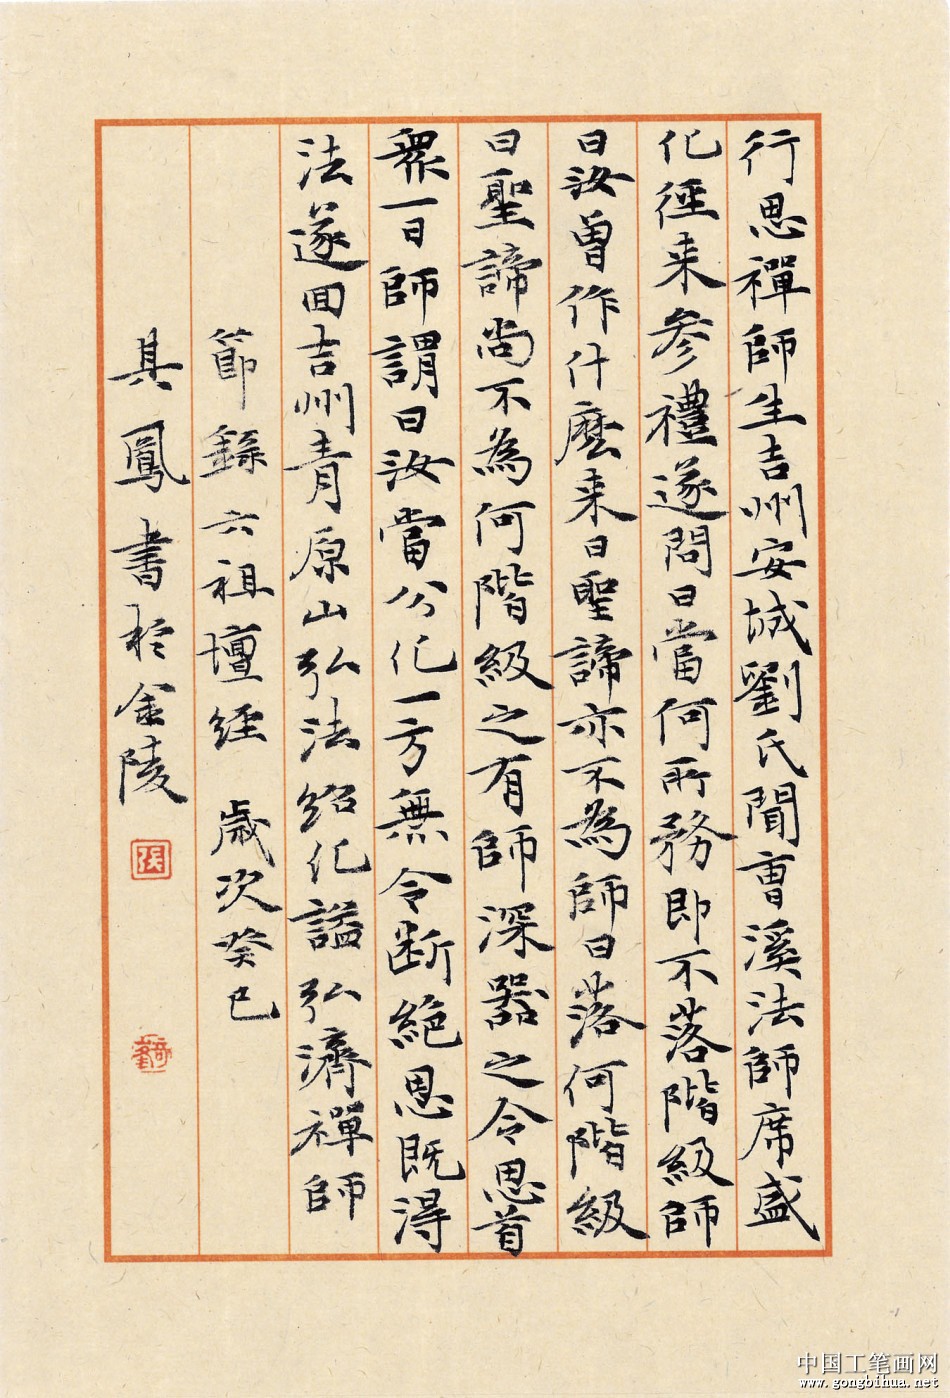 行思禪師生吉州安城劉氏聞曹溪法師席盛
化徑来参禮遂問曰當何所務即不落階級師
曰汝曽作什麼来曰聖諦亦不為師曰落何階級
曰聖諦尚不為何階級之有師深器之令思首
衆一日師謂曰汝當分化一方無令断絶恩既得
法遂回吉州青原山弘法紹化謚弘濟禪師
節録六祖壇經 歲次癸巳
其鳳書於金陵
張
中国工笔画网
www.gongbihua.net